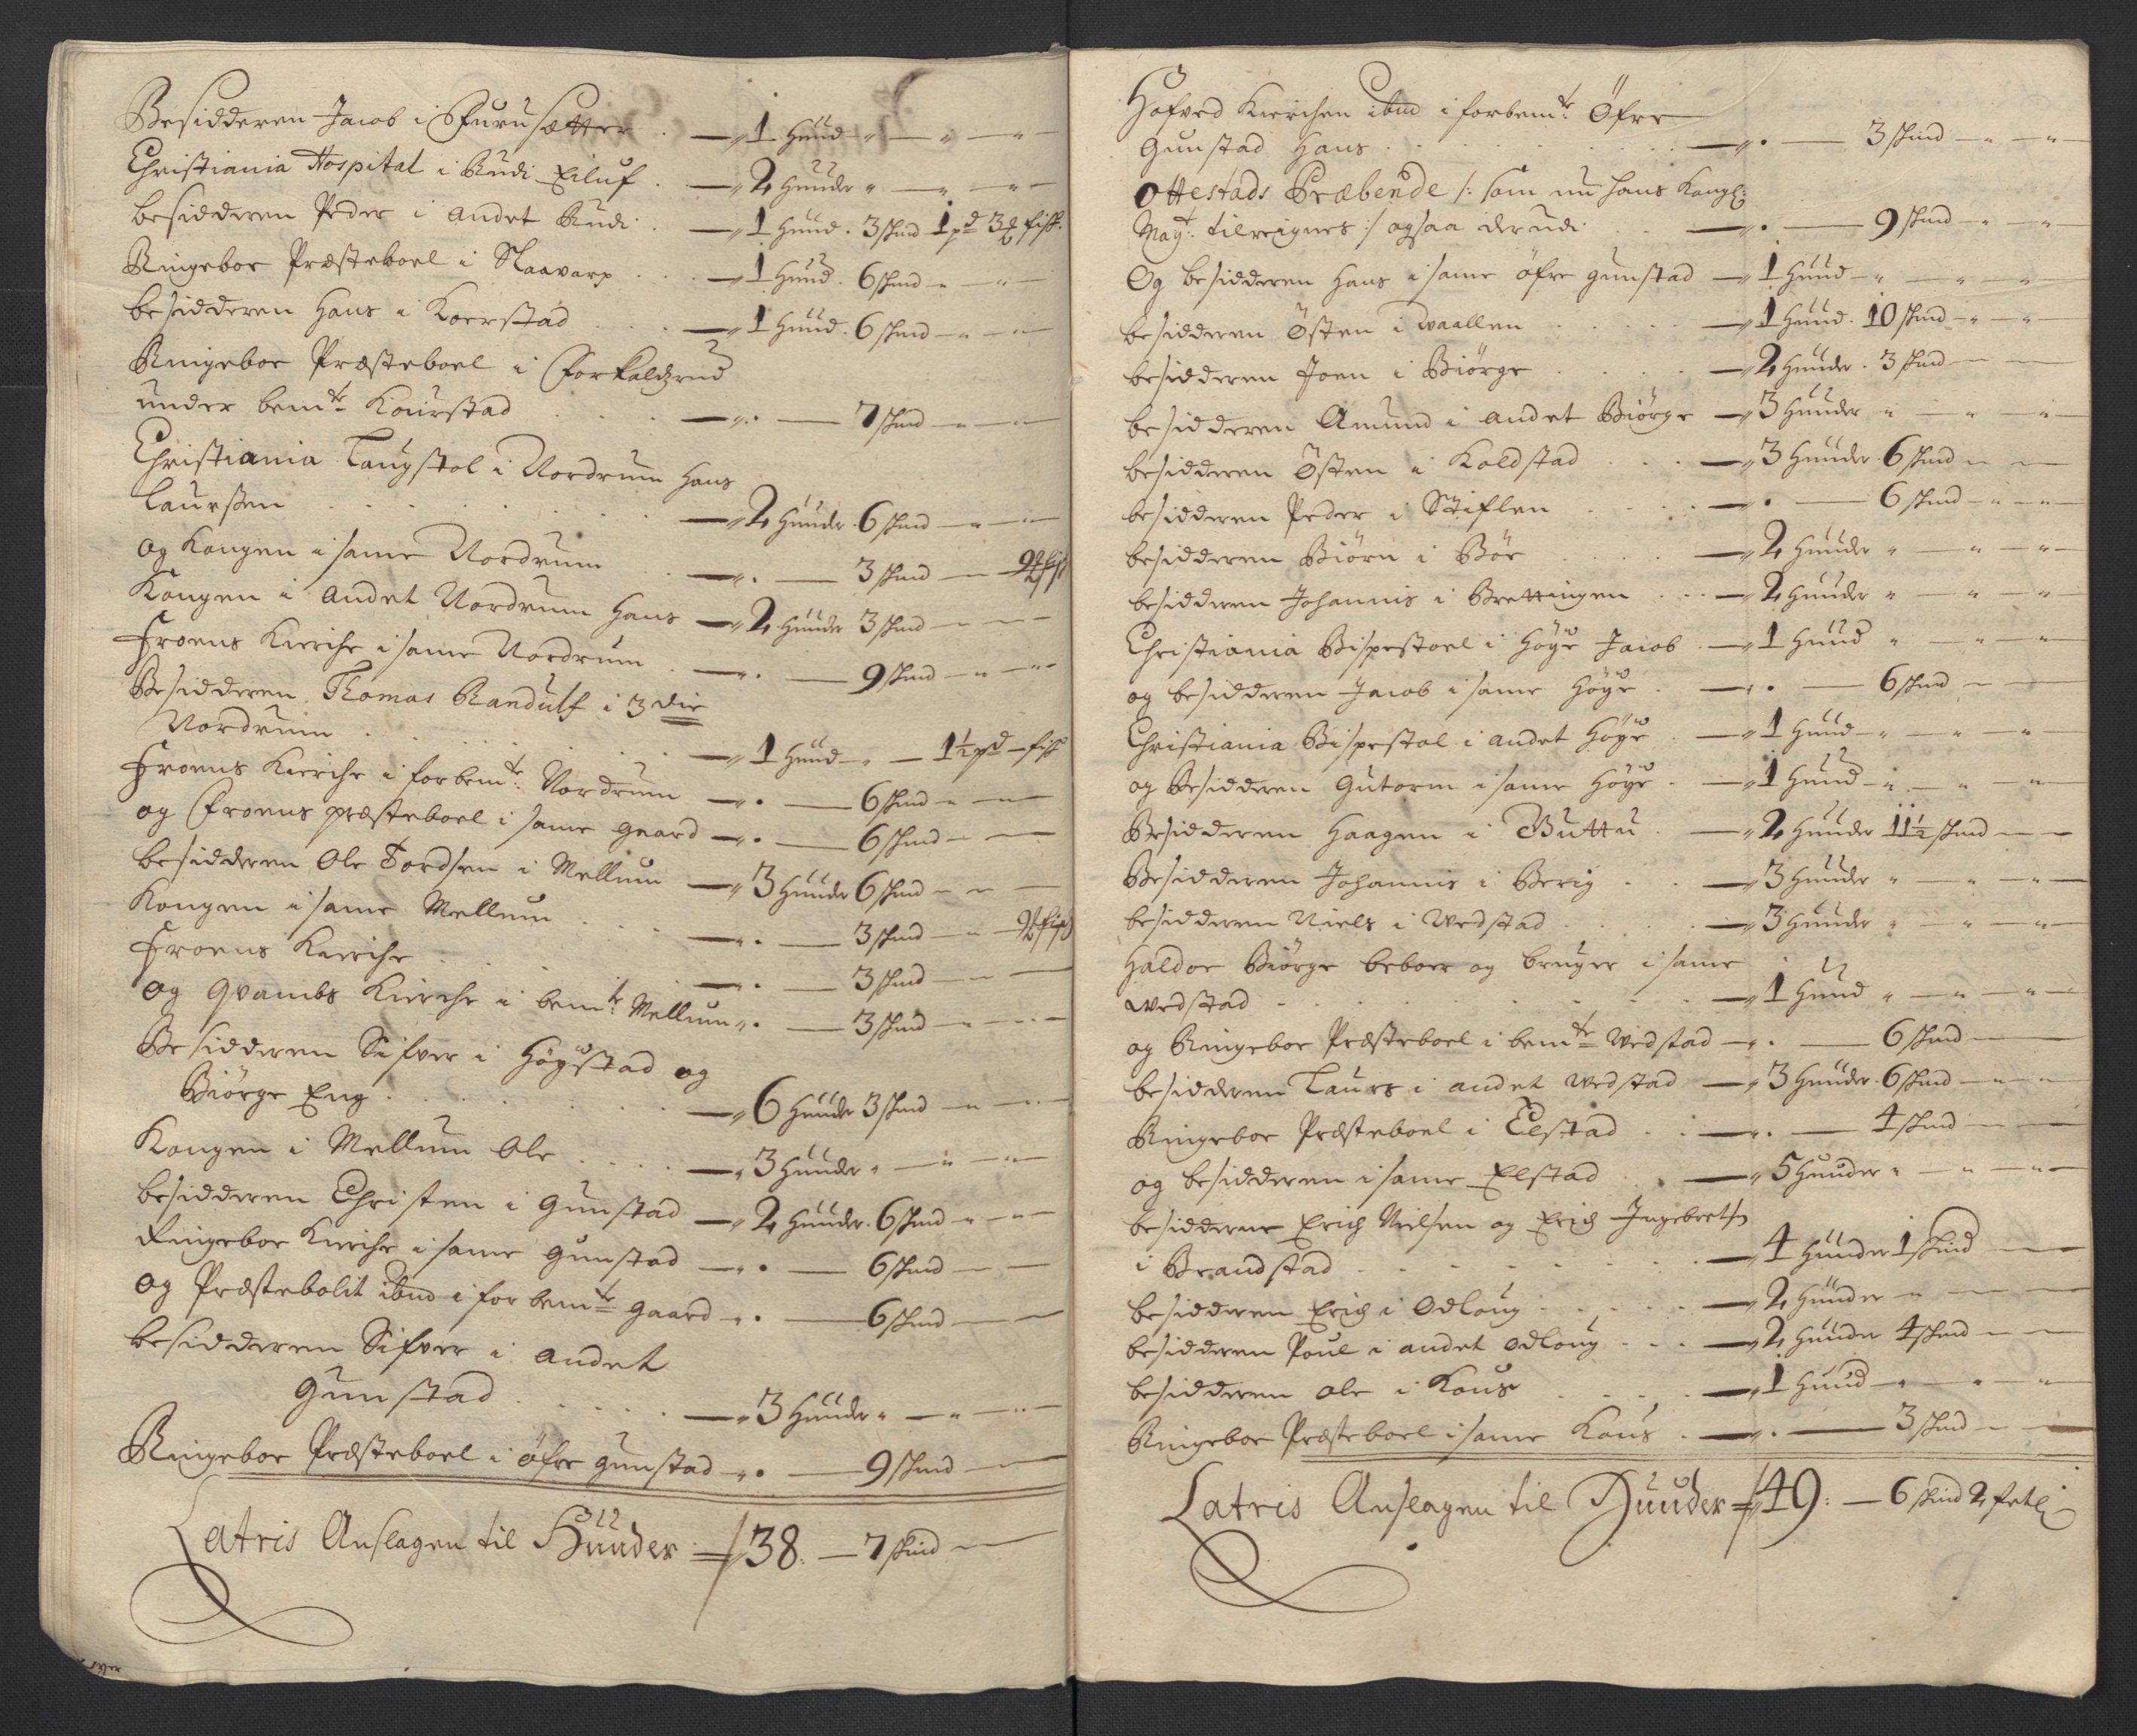 Besidderen Jacob i Furusætter . — " 1 Hund " — " — " —
Christiania Hospital i Rudi Eiluf . — " 2 Hunder " — " — " —
besidderen Peder i andet Rudi . — " 1 Hund . 3 skind 1 pd 3 fisk .
Ringeboe Præsteboel i Slaavarp . . . — " 1 Hund . 6 skind " — " —
besidderen Hans i Koerstad . . . — " 1 Hund . 6 skind — " — " —
Ringeboe Præsteboel i
under bemte Kourstad . . . — " . — 7 skind — " — " —
Christiania Laugstol i Nordrum Hans
Laurssen . . . — " 2 Hunder . 6 skind — " — " —
og Kongen i same Nordrum . . — " . — 3 skind — " —
Kongen i andet Nordrum Hans — " 2 Hunder 3 skind — " — " —
Froens Kierche i same Nordrum . — " . — 9 skind — " — " —
Besidderen Thomas Randulf i 3 die
Nordrum . . . — " 1 Hund — " — 1½ pd — fisk
Froens Kierche i forbemte Nordrum — " . — 6 skind " — " —
og Froens præsteboel i same gaard — " . — 6 skind — " —
besidderen Ole Tordsen i Mellum — " 3 Hunder 6 skind — " —
Kongen i same Mellum . . . — " . — 3 skind — " —
Froens Kierche . . . — " . — 3 skind — " —
og Qvambs Kierche i bemte Mellum " . — 3 skind — " — " —
Besidderen Sifver i Høystad og
Biørge Eng . . . — " 6 Hunder 3 skind — " — " —
Kongen i Mellum Ole . . . — " 3 Hunder " — " — " —
besidderen Christen i Gunstad — " 2 Hunder . 6 skind " — " —
Ringeboe Kierche i same Gunstad — " . — 6 skind — " —
og Præstebolit ibnd i forbemte gaard — " . — 6 skind — " —
besidderen Sifver i andet
Gunstad . . . — " 3 Hunder " — " — " —
Ringeboe Præsteboel i øfre gunstad — " . — 9 skind — " —
Latris Anslagen til Hunder — 38 . — 7 skind —
Hofved Kierchen ibnd i forbemte Öfre
Gunstad Hans . . . — " . — 3 skind — " — " —
Ottestads Præbende /: som nu hans Kongl:
Mayt: tilreignes :/ ogsaa derudi . . — " . — 9 skind — " — " —
Og besidderen Hans i same öfre gunstad — " 1 Hund — " — " — " —
besidderen Östen i Vaallen . . . — " 1 Hund . 10 skind — " — " —
besidderen Joen i Biörge . . . — " 2 Hunder . 3 skind — " —
besidderen Amund i andet Biörge — " 3 Hunder " — " — " —
besidderen Östen i Koldstad . . . — " 3 Hunder . 6 skind — " —
besidderen Peder i Stiflen . . . — " . — 6 skind — " — " —
besidderen Biörn i Böe . . . — " 2 Hunder " — " — " —
besidderen Johannis i Brettingen . . — " 2 Hunder " — " — " —
Christiania Bispestoel i Höye Jacob . — " 1 Hund " — " — " —
og besidderen Jacob i same Höye . — " . — 6 skind — " —
Christiania Bispestol i andet Höye . — " 1 Hund — " — " — " —
og Besidderen Gutorm i same Höye . — " 1 Hund — " . — " — " —
Besidderen Haagen i Buttu . — " 2 Hunder 11½ skind — " —
Besidderen Johannis i Berig . . — " 3 Hunder " — " — " —
besidderen Niels i Wedstad . . . — " 3 Hunder " — " — " —
Haldor Biörge beboer og bruger i same
Wedstad . . . — " 1 Hund " — " — " —
og Ringeboe Præsteboel i bemte Wedstad — " . — 6 skind — " —
besidderen Laurs i andet Wedstad — " 3 Hunder . 6 skind — " — " —
Ringeboe Præsteboel i Elstad . . — " . — 4 skind — " —
og besidderen i same Elstad . . — " 5 Hunder " — " — " —
besidderne Erich Nielsen og Erich Ingebretsn
i Brandstad . . . — " 4 Hunder 1 skind — " —
besidderen Erich i Odloug . . . — " 2 Hunder — " — " —
besidderen Poul i andet Odloug . . . — " 2 Hunder 4 skind — " —
besidderen Ole i Kous . . . — " 1 Hund — " — " — " —
Ringeboe Præsteboel i same Kous . — " . — 3 skind — " —
Latris Anslagen til Hunder — 49 : — 6 skind 2